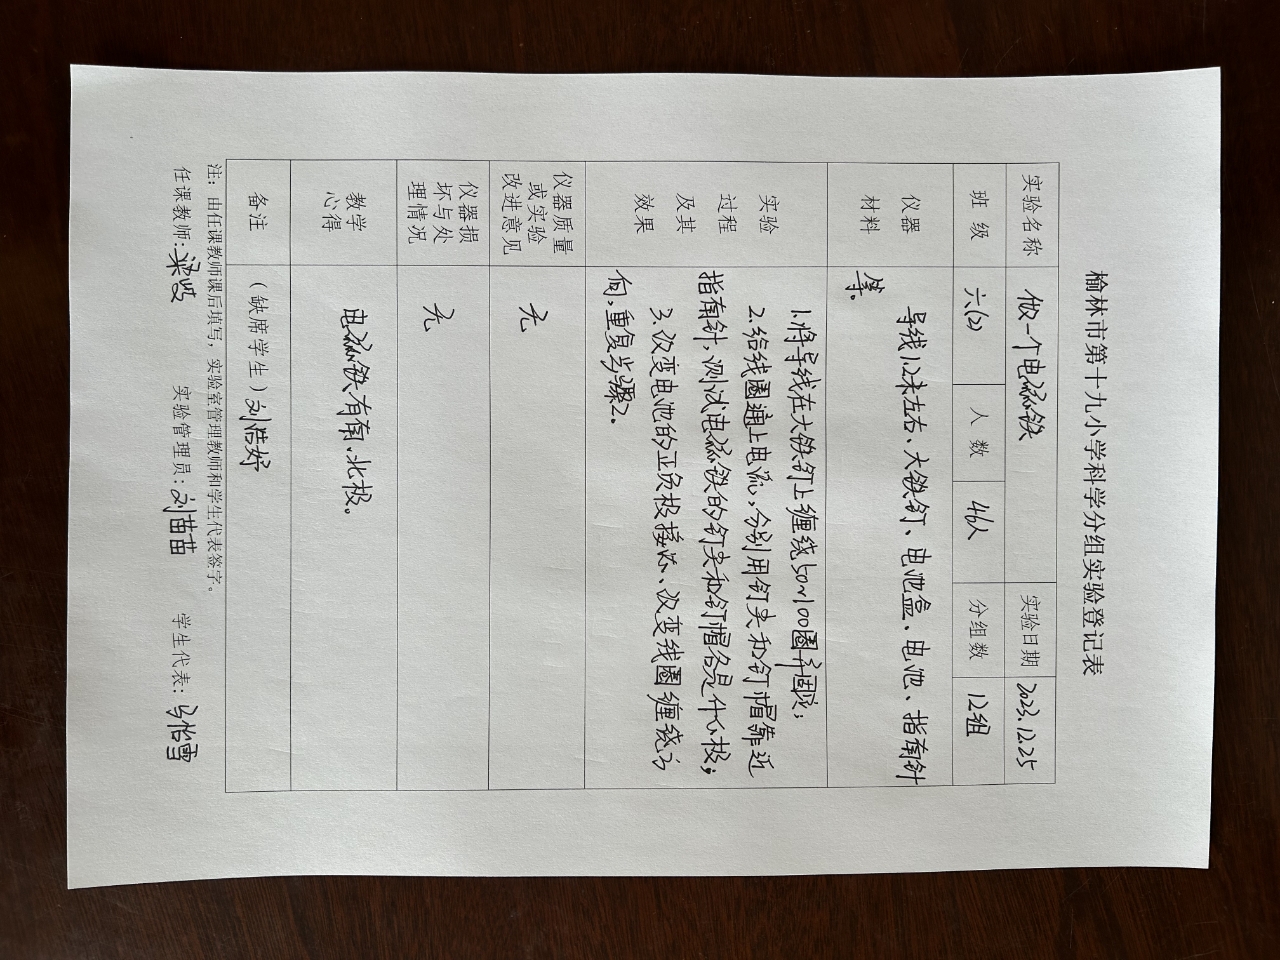 榆林市第十九小学科学分组实验登记表
实验名称 做一个电磁铁 实验日期 2023.12.25
班级 六(2) 人数 46人 分组数 12组
仪器材料 导线1.2米左右、大铁钉、电池盒、电池、指南针
等。
实验过程及其效果
1.将导线在大铁钉上缠绕50~100圈并固定;
2.给线圈通上电流,分别用钉尖和钉帽靠近
指南针,测试电磁铁的钉尖和钉帽各是什么极;
3.改变电池的正负极接法、改变线圈缠绕方
向,重复步骤2.
仪器质量或实验改进意见 无
仪器损坏与处理情况 无
教学心得 电磁铁有南、北极。
备注 (缺席学生)刘浩妤
注:由任课教师课后填写,实验室管理教师和学生代表签字。
任课教师: 实验管理员:刘苗苗 学生代表:马怡雪